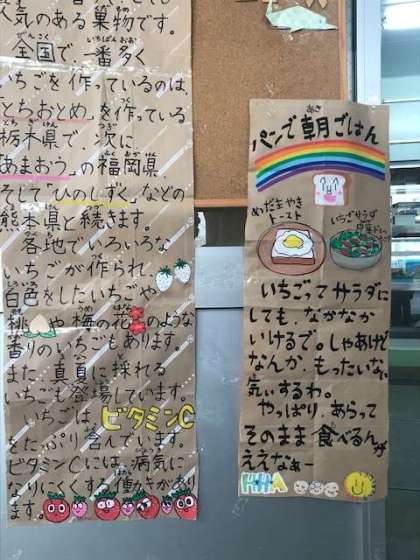 人気のある果物です。
全国で、一番多く
いちごを作っているのは、
「とちおとめ」を作っている
栃木県で、次に
「あまおう」の福岡県、
そして「ひのしずく」などの
熊本県と続きます。
各地でいろいろな
いちごが作られ、
白色をしたいちごや
桃や梅の花のような
香りのいちごもあります。
また、真夏に採れる
いちごも登場しています。
いちごは、ビタミンC
をたっぷり含んでいます。
ビタミンCには、病気に
なりにくくする働きがあり
ます。
パンで朝ごはん
めだまやき
トースト
いちごサラダ
いちごってサラダに
しても、なかなか
いけるで。しゃあけど
なんか、もったいない
気ぃするわ。
やっぱり、あらって
そのまま食べるんが
ええなぁー